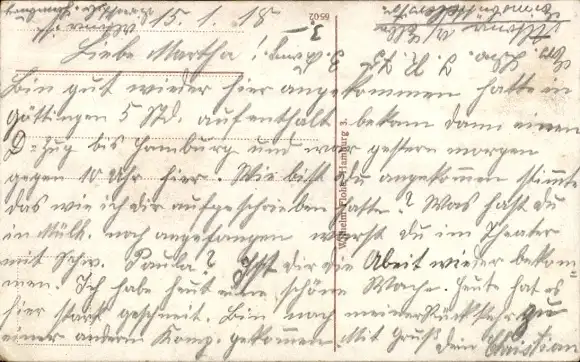 15. 1. 18
Liebe Martha!
Bin gut wieder hier angekommen hatte in
Göttingen 5 Std. aufenthalt bekam dann einen
D-Zug bis Hamburg und war gestern morgen
gegen 10 Uhr hier. Wie bist du angekommen stimmte
das wie ich dir aufgeschrieben hatte? Was hast du
in Mülh. noch angefangen warst du im Theater
mit Schw. Paula? Ist dir die Abeit wieder bekom
men. Ich habe heut eine schöne Wache. Heute hat es
hier stark geschneit. Bin nach meiner Rückkehr zu
einer andern Komp. gekommen. Mit Gruß
dein Christian
Wilhelm Hamburg 3.
6502